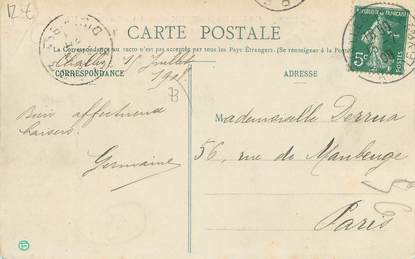 12-€
CARTE POSTALE
La Correspondance au recto n'est pas acceptée par tous les Pays Étrangers. (Se renseigner à la Poste)
CORRESPONDANCE
ADRESSE
15 Juillet
1908
73
Bien affectueux
baisers.
Germaine
Mademoiselle Derrua
56, rue de Maubeuge
Paris
5c
POSTES